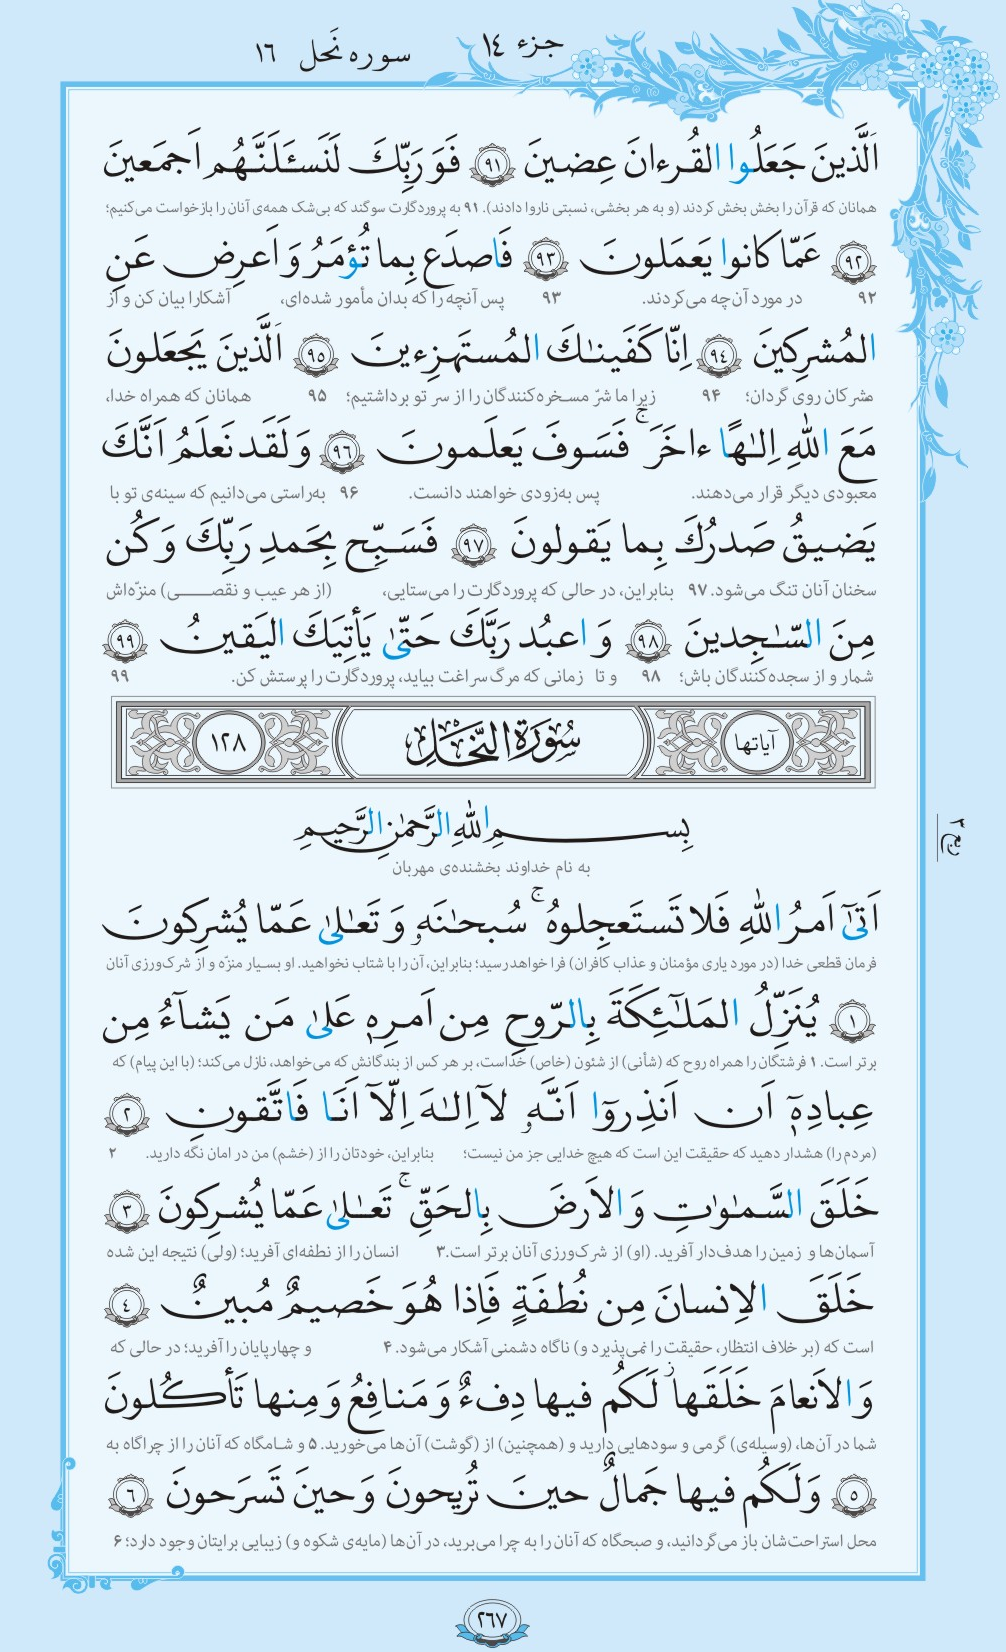 جزء ١٤
سوره نَحل ١٦
اَلَّذينَ جَعَلُوا القُرءانَ عِضينَ ﴿٩١﴾ فَوَرَبِّكَ لَنَسـَٔلَنَّهُم اَجمَعينَ
همانان که قرآن را بخش بخش کردند (و به هر بخشی، نسبتی ناروا دادند). ۹۱ به پروردگارت سوگند که بی‌شک همه‌ی آنان را بازخواست می‌کنیم؛
﴿٩٢﴾ عَمّا كانوا يَعمَلونَ ﴿٩٣﴾ فَاصدَع بِما تُؤمَرُ وَ اَعرِض عَنِ
۹۲ در مورد آن‌چه می‌کردند. ۹۳ پس آنچه را که بدان مأمور شده‌ای، آشکارا بیان کن و از
المُشرِكينَ ﴿٩٤﴾ اِنّا كَفَينٰكَ المُستَهزِءينَ ﴿٩٥﴾ اَلَّذينَ يَجعَلونَ
مشرکان روی گردان؛ ۹۴ زیرا ما شرّ مسخره‌کنندگان را از سر تو برداشتیم؛ ۹۵ همانان که همراه خدا،
مَعَ اللهِ اِلـٰهًا ءاخَرَ ۚ فَسَوفَ يَعلَمونَ ﴿٩٦﴾ وَ لَقَد نَعلَمُ اَنَّكَ
معبودی دیگر قرار می‌دهند. پس به‌زودی خواهند دانست. ۹۶ به‌راستی می‌دانیم که سینه‌ی تو با
يَضيقُ صَدرُكَ بِما يَقولونَ ﴿٩٧﴾ فَسَبِّح بِحَمدِ رَبِّكَ وَ كُن
سخنان آنان تنگ می‌شود. ۹۷ بنابراین، در حالی که پروردگارت را می‌ستایی، (از هر عیب و نقصـــی) منزّه‌اش
مِنَ السّـٰجِدينَ ﴿٩٨﴾ وَ اعبُد رَبَّكَ حَتّىٰ يَأتِيَكَ اليَقينُ ﴿٩٩﴾
شمار و از سجده‌کنندگان باش؛ ۹۸ و تا زمانی که مرگ سراغت بیاید، پروردگارت را پرستش کن. ۹۹
آیاتها سُورَةُ النَّحل ١٢٨
ربع ۳
بِسـمِ اللهِ الرَّحمٰنِ الرَّحيمِ
به نام خداوند بخشنده‌ی مهربان
اَتىٰٓ اَمرُ اللهِ فَلا تَستَعجِلوهُ ۚ سُبحـٰنَهٗ وَ تَعـٰلىٰ عَمّا يُشرِكونَ
فرمان قطعی خدا (در مورد یاری مؤمنان و عذاب کافران) فرا خواهد رسید؛ بنابراین، آن را با شتاب نخواهید. او بسیار منزّه و از شرک‌ورزی آنان
﴿١﴾ يُنَزِّلُ المَلـٰٓئِكَةَ بِالرّوحِ مِن اَمرِهٖ عَلىٰ مَن يَشآءُ مِن
برتر است. ۱ فرشتگان را همراه روح که (شأنی) از شئون (خاص) خداست، بر هر کس از بندگانش که می‌خواهد، نازل می‌کند؛ (با این پیام) که
عِبادِهٖٓ اَن اَنذِروٓا اَنَّهٗ لآ اِلـٰهَ اِلّآ اَنَا فَاتَّقونِ ﴿٢﴾
(مردم را) هشدار دهید که حقیقت این است که هیچ خدایی جز من نیست؛ بنابراین، خودتان را از (خشم) من در امان نگه دارید. ۲
خَلَقَ السَّمـٰوٰتِ وَ الاَرضَ بِالحَقِّ ۚ تَعـٰلىٰ عَمّا يُشرِكونَ ﴿٣﴾
آسمان‌ها و زمین را هدف‌دار آفرید. (او) از شرک‌ورزی آنان برتر است.۳ انسان را از نطفه‌ای آفرید؛ (ولی) نتیجه این شده
خَلَقَ الاِنسانَ مِن نُطفَةٍ فَاِذا هُوَ خَصيمٌ مُبينٌ ﴿٤﴾
است که (بر خلاف انتظار، حقیقت را نمی‌پذیرد و) ناگاه دشمنی آشکار می‌شود. ۴ و چهارپایان را آفرید؛ در حالی که
وَ الاَنعامَ خَلَقَها ۗ لَكُم فيها دِفءٌ وَ مَنافِعُ وَ مِنها تَأكُلونَ
شما در آن‌ها، (وسیله‌ی) گرمی و سودهایی دارید و (همچنین) از (گوشت) آن‌ها می‌خورید. ۵ و شامگاه که آنان را از چراگاه به
﴿٥﴾ وَ لَكُم فيها جَمالٌ حينَ تُريحونَ وَ حينَ تَسرَحونَ ﴿٦﴾
محل استراحت‌شان باز می‌گردانید، و صبحگاه که آنان را به چرا می‌برید، در آن‌ها (مایه‌ی شکوه و) زیبایی برایتان وجود دارد؛ ۶
٢٦٧